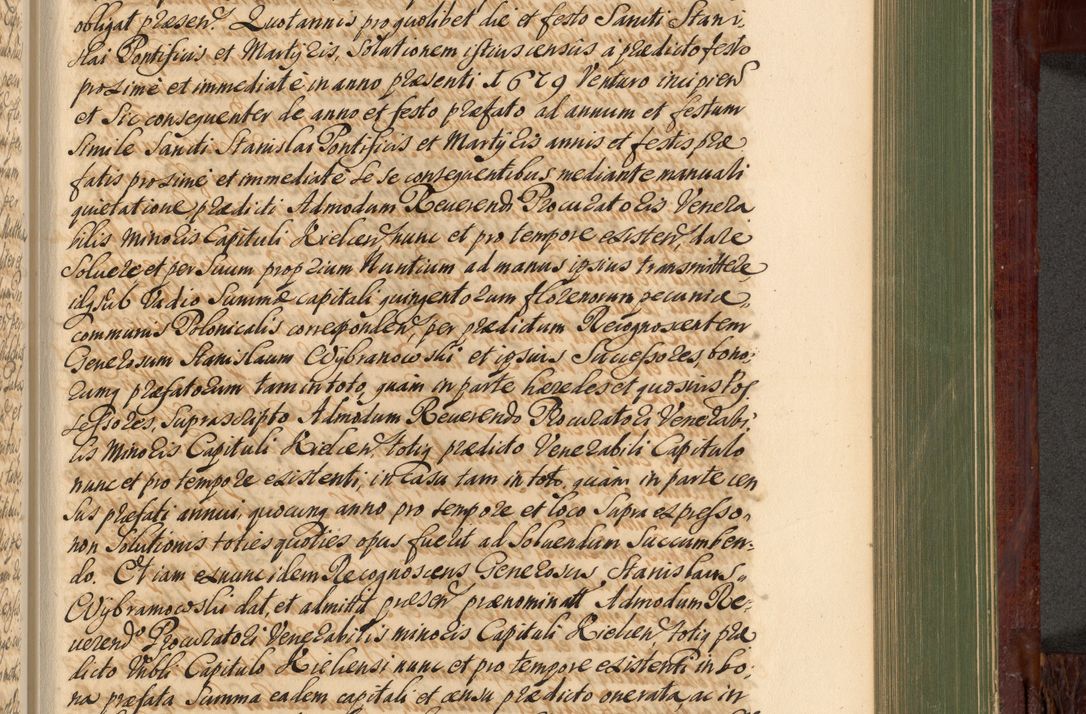 obligat præsen. Quotannis pro quolibet die et festo Sancti Stani,
slai Pontificis et Martyris, Solutionem istius census à prædicto festo
proximè et immediatè in anno præsenti 1679 Venturo incipien
et Sic consequenter de anno et festo præfato ad annum et festum
Simile Sancti Stanislai Pontificis et Martyris annis et festis præ
fatis proximè et immediatè se se consequentibus mediante manuali
quietatione prædicti Admodum Reverendi Procuratoris Venera
bilis Minoris Capituli Kielcen, nunc et pro tempore existen, dare
Solvere et per Suum proprium Nuntium ad manus ipsius transmittere
idq sub Vadio Summæ capitali quingentorum florenorum pecuniæ,
communis Polonicalis corresponden, per prædictum Recognoscentem
Generosum Stanislaum Wybranowski et ipsius Successores, bono,
rumq præfatorum tam in toto, quàm in parte hæredes et quosvis Pos
sessores, Suprascripto Admodum Reverendo Procuratori Venerabi,
lis Minoris Capituli Kielcen totiq prædicto Venerabili Capitulo
nunc et pro tempore existenti, in Casu tam in toto, quàm in parte cen
sus præfati annui, quocunq anno pro tempore et loco Supra expresso,
non Solutionis toties quoties opus fuerit ad Solvendum Succumben:
do. Etiam ex nunc idem Recognoscens Generosus Stanislaus
Wybramowski dat, et admittit præsen prænominatt Admodum Re:
verend Procuratori Venerabilis minoris Capituli Kielcen totiq præ
dicto Vnbli Capitulo Kielcensi nunc et pro tempore existenti in bo:
na præfata Summa eadem capitali et censu prædicto onerata, ac in